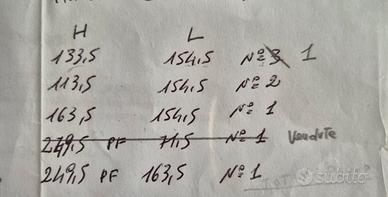 H L
133,5 154,5 Nº 3 1
113,5 154,5 Nº 2
163,5 154,5 Nº 1
249,5 PF 71,5 Nº 1 Vendute
249,5 PF 163,5 Nº 1
subito